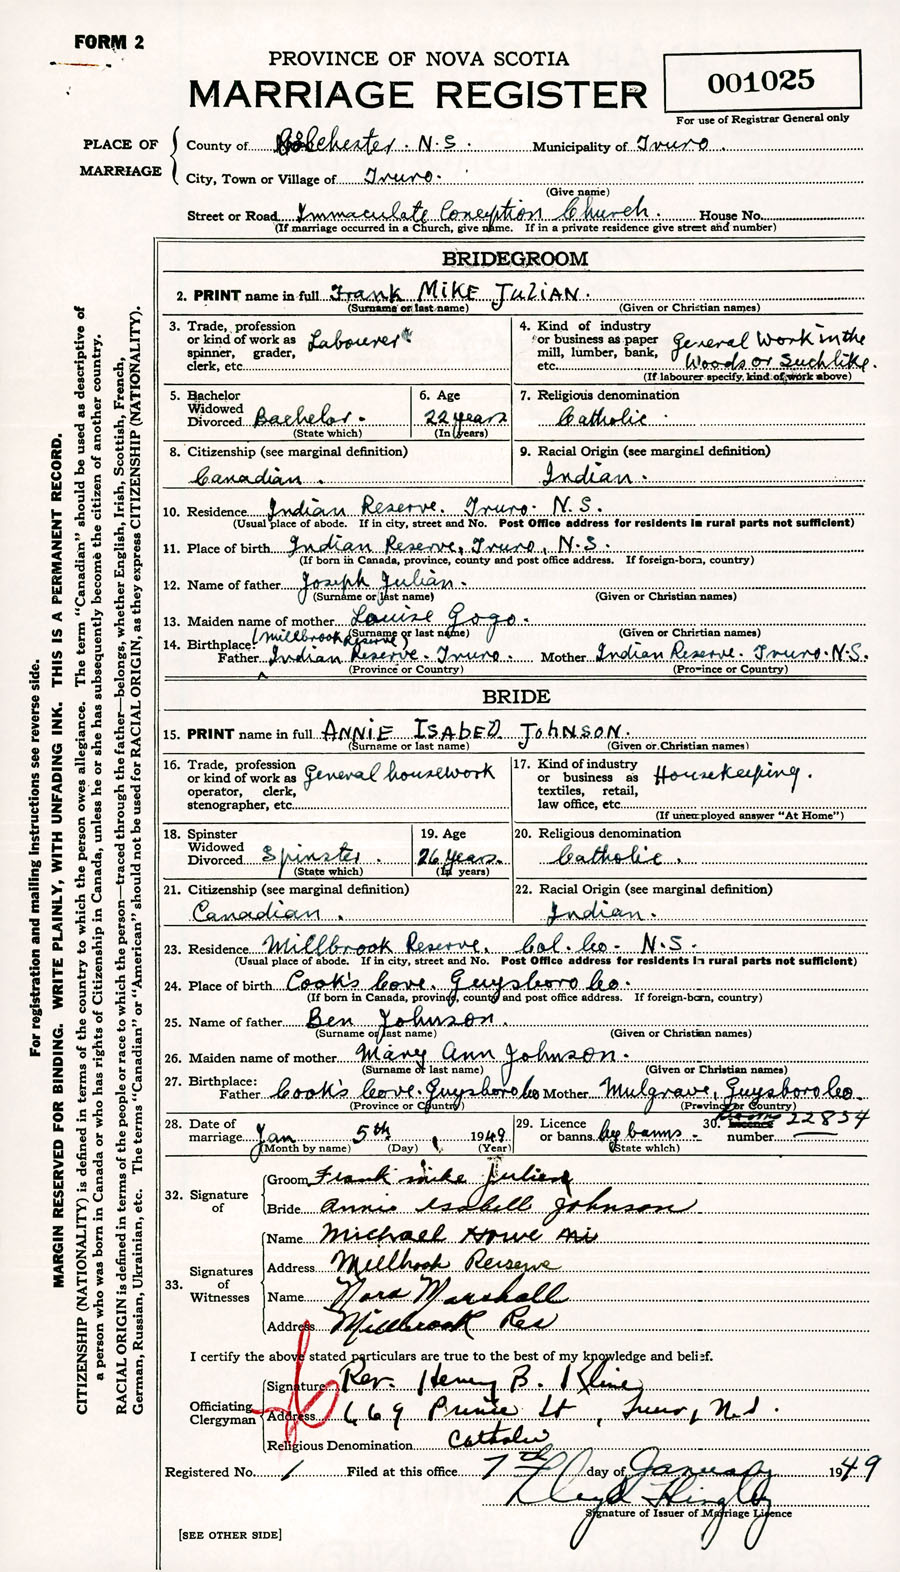 FORM 2
PROVINCE OF NOVA SCOTIA
MARRIAGE REGISTER
001025
For use of Registrar General only
PLACE OF MARRIAGE
County of Colchester. N.S. Municipality of Truro.
City, Town or Village of Truro.
(Give name)
Street or Road Immaculate Conception Church. House No.
(If marriage occurred in a Church, give name. If in a private residence give street and number)
BRIDEGROOM
2. PRINT name in full Frank MIKE JULIAN.
(Surname or last name) (Given or Christian names)
3. Trade, profession or kind of work as spinner, grader, clerk, etc. Labourer
4. Kind of industry or business as paper mill, lumber, bank, etc. General Work in the Woods or Such like.
(If labourer specify kind of work above)
5. Bachelor Widowed Divorced Bachelor.
(State which)
6. Age 22 years
(In years)
7. Religious denomination Catholic
8. Citizenship (see marginal definition) Canadian.
9. Racial Origin (see marginal definition) Indian.
10. Residence Indian Reserve. Truro. N.S.
(Usual place of abode. If in city, street and No. Post Office address for residents in rural parts not sufficient)
11. Place of birth Indian Reserve, Truro, N.S.
(If born in Canada, province, county and post office address. If foreign-born, country)
12. Name of father Joseph Julian.
(Surname or last name) (Given or Christian names)
13. Maiden name of mother Louise Gogo.
(Surname or last name) (Given or Christian names)
(Millbrook Reserve)
14. Birthplace: Father Indian Reserve. Truro. Mother Indian Reserve. Truro. N.S.
(Province or Country) (Province or Country)
BRIDE
15. PRINT name in full ANNIE ISABEll JOhNSON.
(Surname or last name) (Given or Christian names)
16. Trade, profession or kind of work as operator, clerk, stenographer, etc. General housework
17. Kind of industry or business as textiles, retail, law office, etc. Housekeeping.
(If unemployed answer "At Home")
18. Spinster Widowed Divorced Spinster.
(State which)
19. Age 26 years.
(In years)
20. Religious denomination Catholic.
21. Citizenship (see marginal definition) Canadian.
22. Racial Origin (see marginal definition) Indian.
23. Residence Millbrook Reserve. Col. Co. N.S.
(Usual place of abode. If in city, street and No. Post Office address for residents in rural parts not sufficient)
24. Place of birth Cook's Cove. Guysboro Co.
(If born in Canada, province, county and post office address. If foreign-born, country)
25. Name of father Ben Johnson.
(Surname or last name) (Given or Christian names)
26. Maiden name of mother Mary Ann Johnson.
(Surname or last name) (Given or Christian names)
27. Birthplace: Father Cook's Cove. Guysboro Co Mother Mulgrave, Guysboro Co.
(Province or Country) (Province or Country)
28. Date of marriage Jan 5th 1949
(Month by name) (Day) (Year)
29. Licence or banns by banns.
(State which)
30. number 22854
32. Signature of
Groom Frank mike Julien
Bride Annie Isabell Johnson
33. Signatures of Witnesses
Name Michael Howe
Address Millbrook Reserve
Name Nora Marshall
Address Millbrook Res
I certify the above stated particulars are true to the best of my knowledge and belief.
Officiating Clergyman
Signature Rev. Henry B. Kline
Address 669 Prince St, Truro, N.S.
Religious Denomination Catholic
Registered No. 1 Filed at this office 7th day of January 1949
Lloyd
Signature of Issuer of Marriage Licence
[SEE OTHER SIDE]
For registration and mailing instructions see reverse side.
MARGIN RESERVED FOR BINDING. WRITE PLAINLY, WITH UNFADING INK. THIS IS A PERMANENT RECORD.
CITIZENSHIP (NATIONALITY) is defined in terms of the country to which the person owes allegiance. The term "Canadian" should be used as descriptive of
a person who was born in Canada or who has rights of Citizenship in Canada, unless he or she has subsequently become the citizen of another country.
RACIAL ORIGIN is defined in terms of the people or race to which the person—traced through the father—belongs, whether English, Irish, Scottish, French,
German, Russian, Ukrainian, etc. The terms "Canadian" or "American" should not be used for RACIAL ORIGIN, as they express CITIZENSHIP (NATIONALITY).